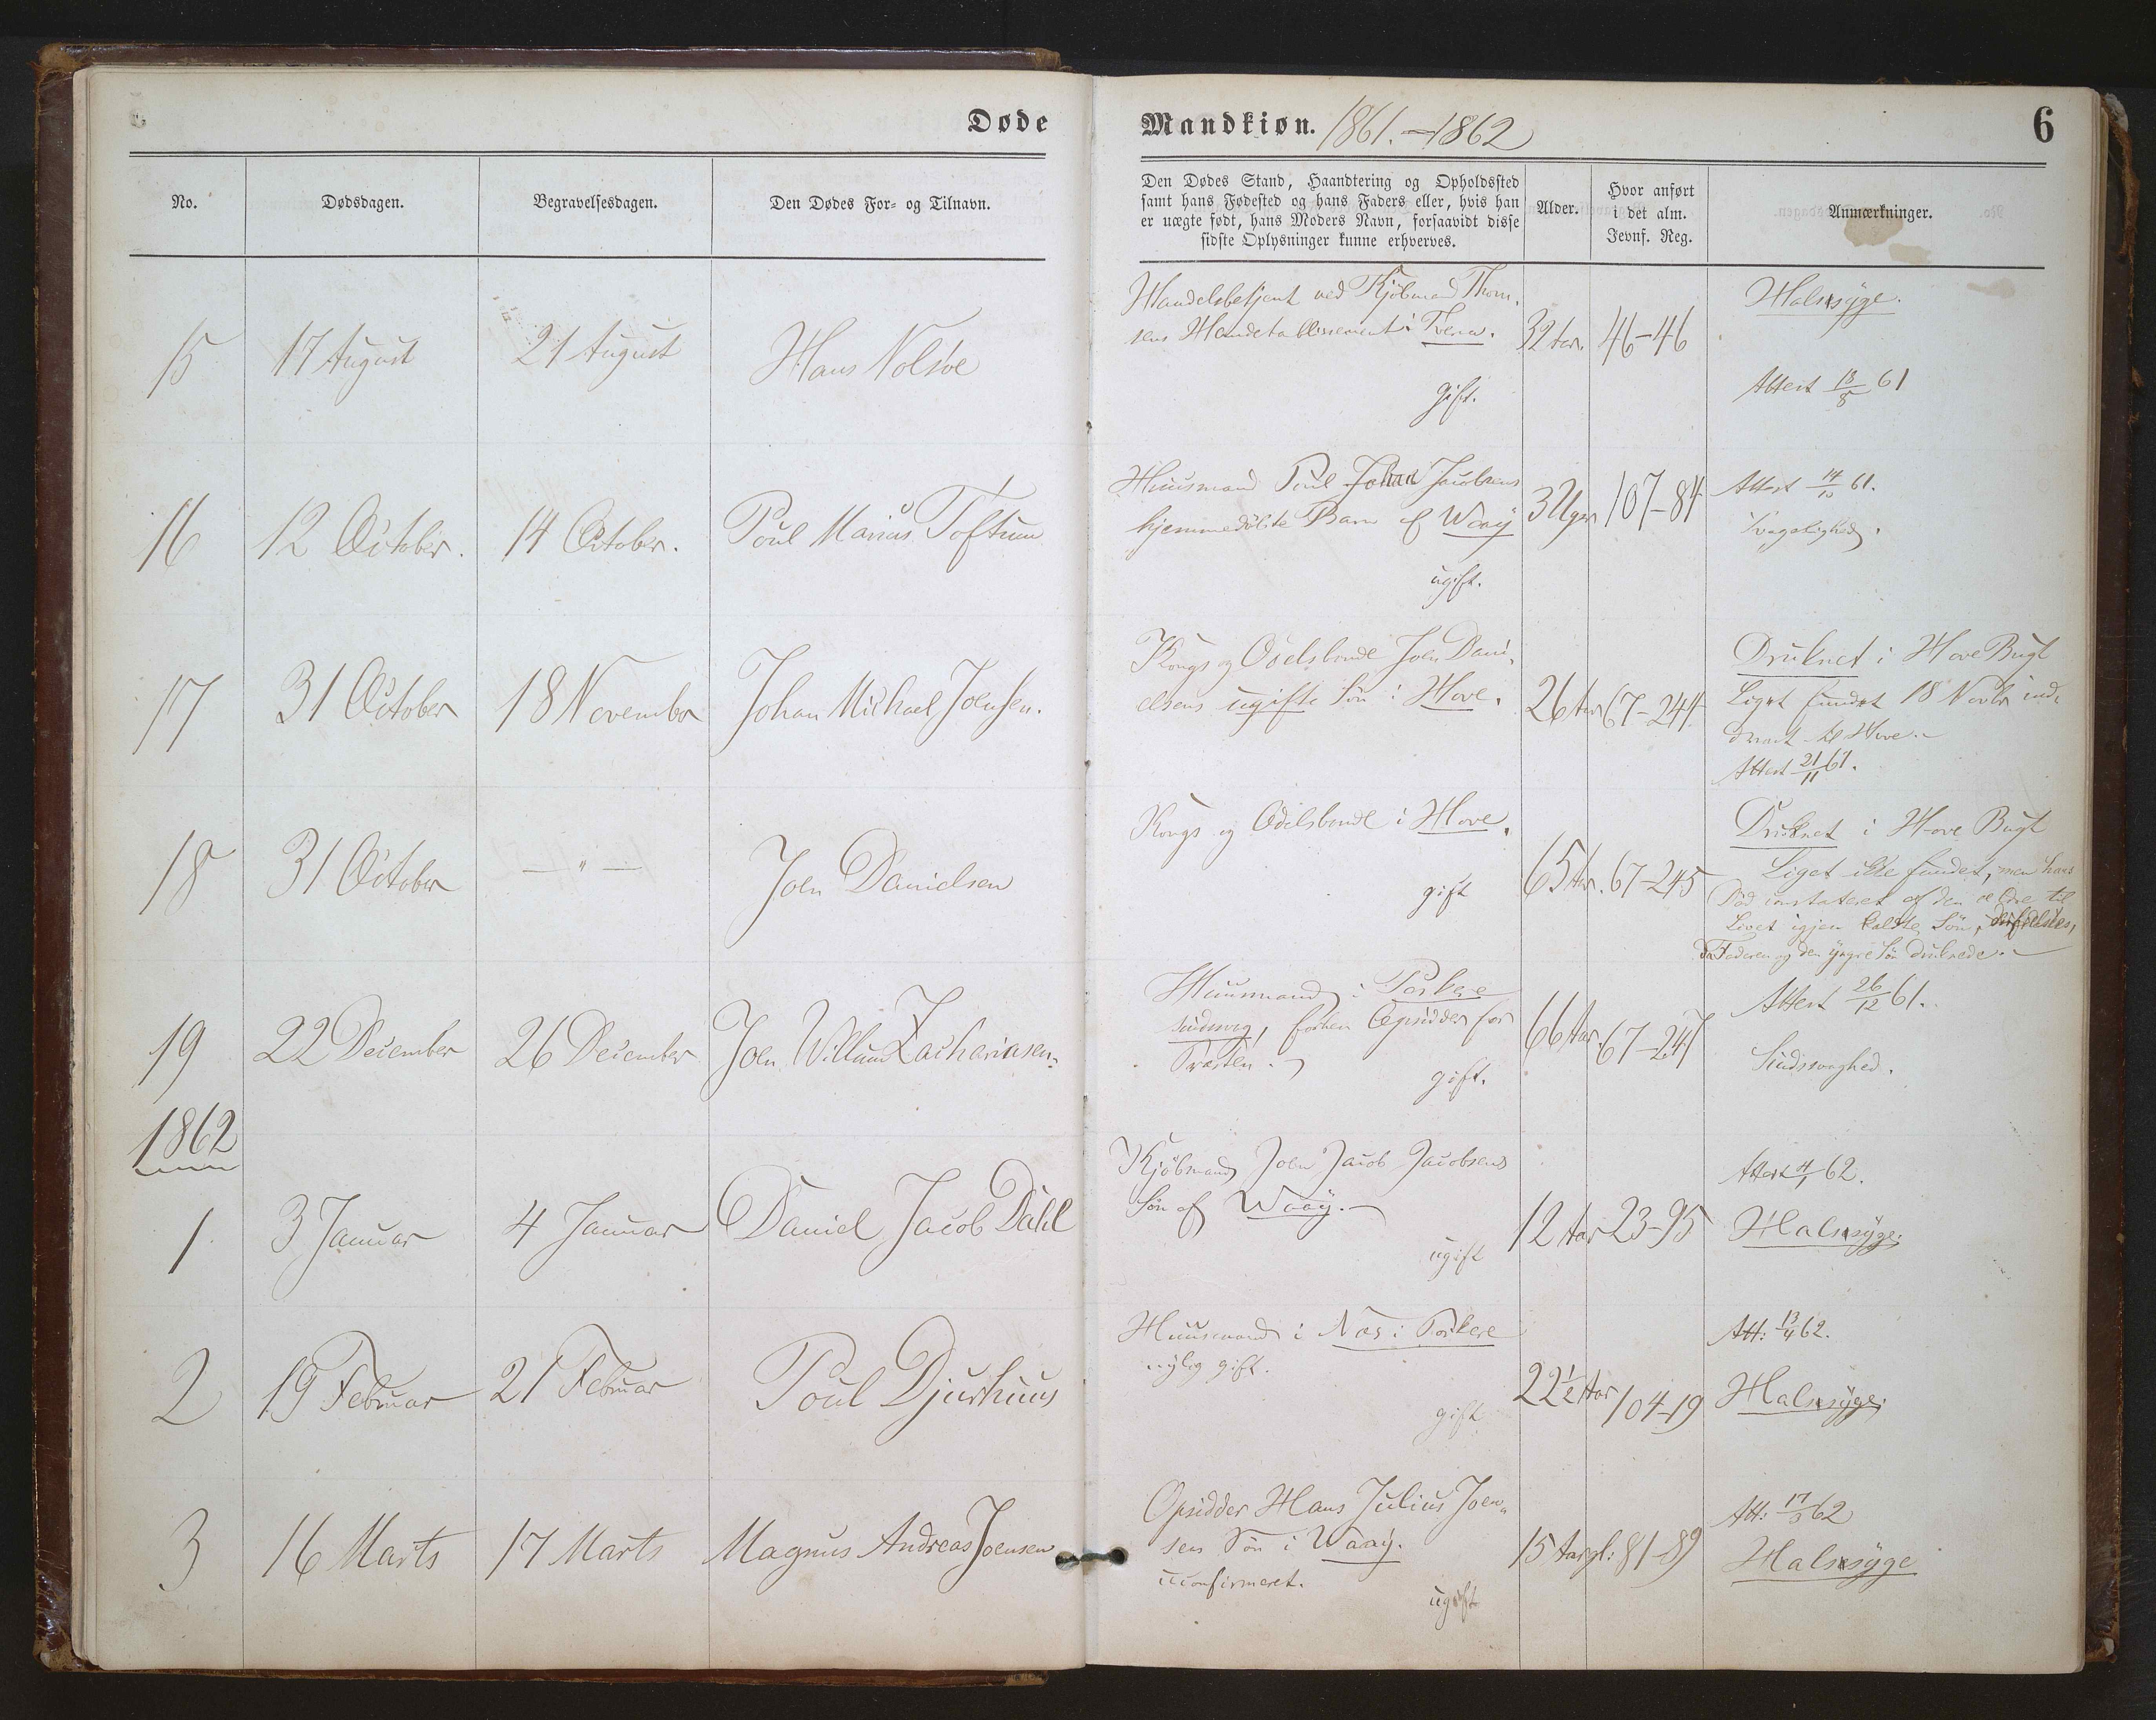 Døde
Mandkiøn. 1861.-1862
6
No.
Dødsdagen.
Begravelsesdagen.
Den Dødes For- og Tilnavn.
Den Dødes Stand, Haandtering og Opholdssted
samt hans Fødested og hans Faders eller, hvis han
er uægte født, hans Moders Navn, forsaavidt disse
sidste Oplysninger kunne erhverves.
Alder.
Hvor anført
i det alm.
Jevnf. Reg.
Anmærkninger.
15
17 August
21 August
Hans Nolsøe
Handelsbetjent ved Kjøbmand Thom-
sens Handetablissement i Tverå.
gift.
32 Aar.
46-46
Halssyge.
Attest 18/8 61
16
12 October.
14 October.
Poul Marius Toftum
Huusmand Poul Johan Jacobsens
hjemmedøbte Barn af Waaÿ
ugift.
3 Uger
107-84
Attest 14/10 61.
Svagelighed.
17
31 October
18 November
Johan Michael Joensen.
Kongs og Odelsbonde Joen Dani-
elsens ugifte Søn i Hove.
26 Aar
67-244
Druknet i Hove Bugt
Liget fundet 18 Novbr ind-
drevet til Hove.-
Attest 21/11 61.
18
31 October
- " -
Joen Danielsen
Kongs og Odelsbonde i Hove.
gift
65 Aar.
67-245
Druknet i Hove Bugt
Liget ikke fundet, men hans
Død constateret af den ældre til
Livet igjen kaldte Søn,
da Faderen og den yngre Søn druknede.-
19
22 December
26 December
Joen Willum Zachariasen.
Huusmand i Porkere
sudnvig, forhen Opsidder for
Præsten.
gift.
66 Aar.
67-247
Attest 26/12 61.
Sindssvaghed.
1862
1
3 Januar
4 Januar
Daniel Jacob Dahl
Kjøbmand Joen Jacob Jacobsens
Søn af Waaÿ.-
ugift
12 Aar
23-95
Attest 4/1 62.
Halssyge.
2
19 Februar
21 Februar
Poul Djurhuus
Huusmand i Næs i Porkere
nylig gift.
gift
22½ Aar
104-19
Att: 13/4 62.
Halssyge.
3
16 Marts
17 Marts
Magnus Andreas Joensen
Opsidder Hans Julius Joen-
sens Søn i Waaÿ.
uconfirmeret.
ugift
15 Aar gl:
81-89
Att: 17/3 62
Halssyge